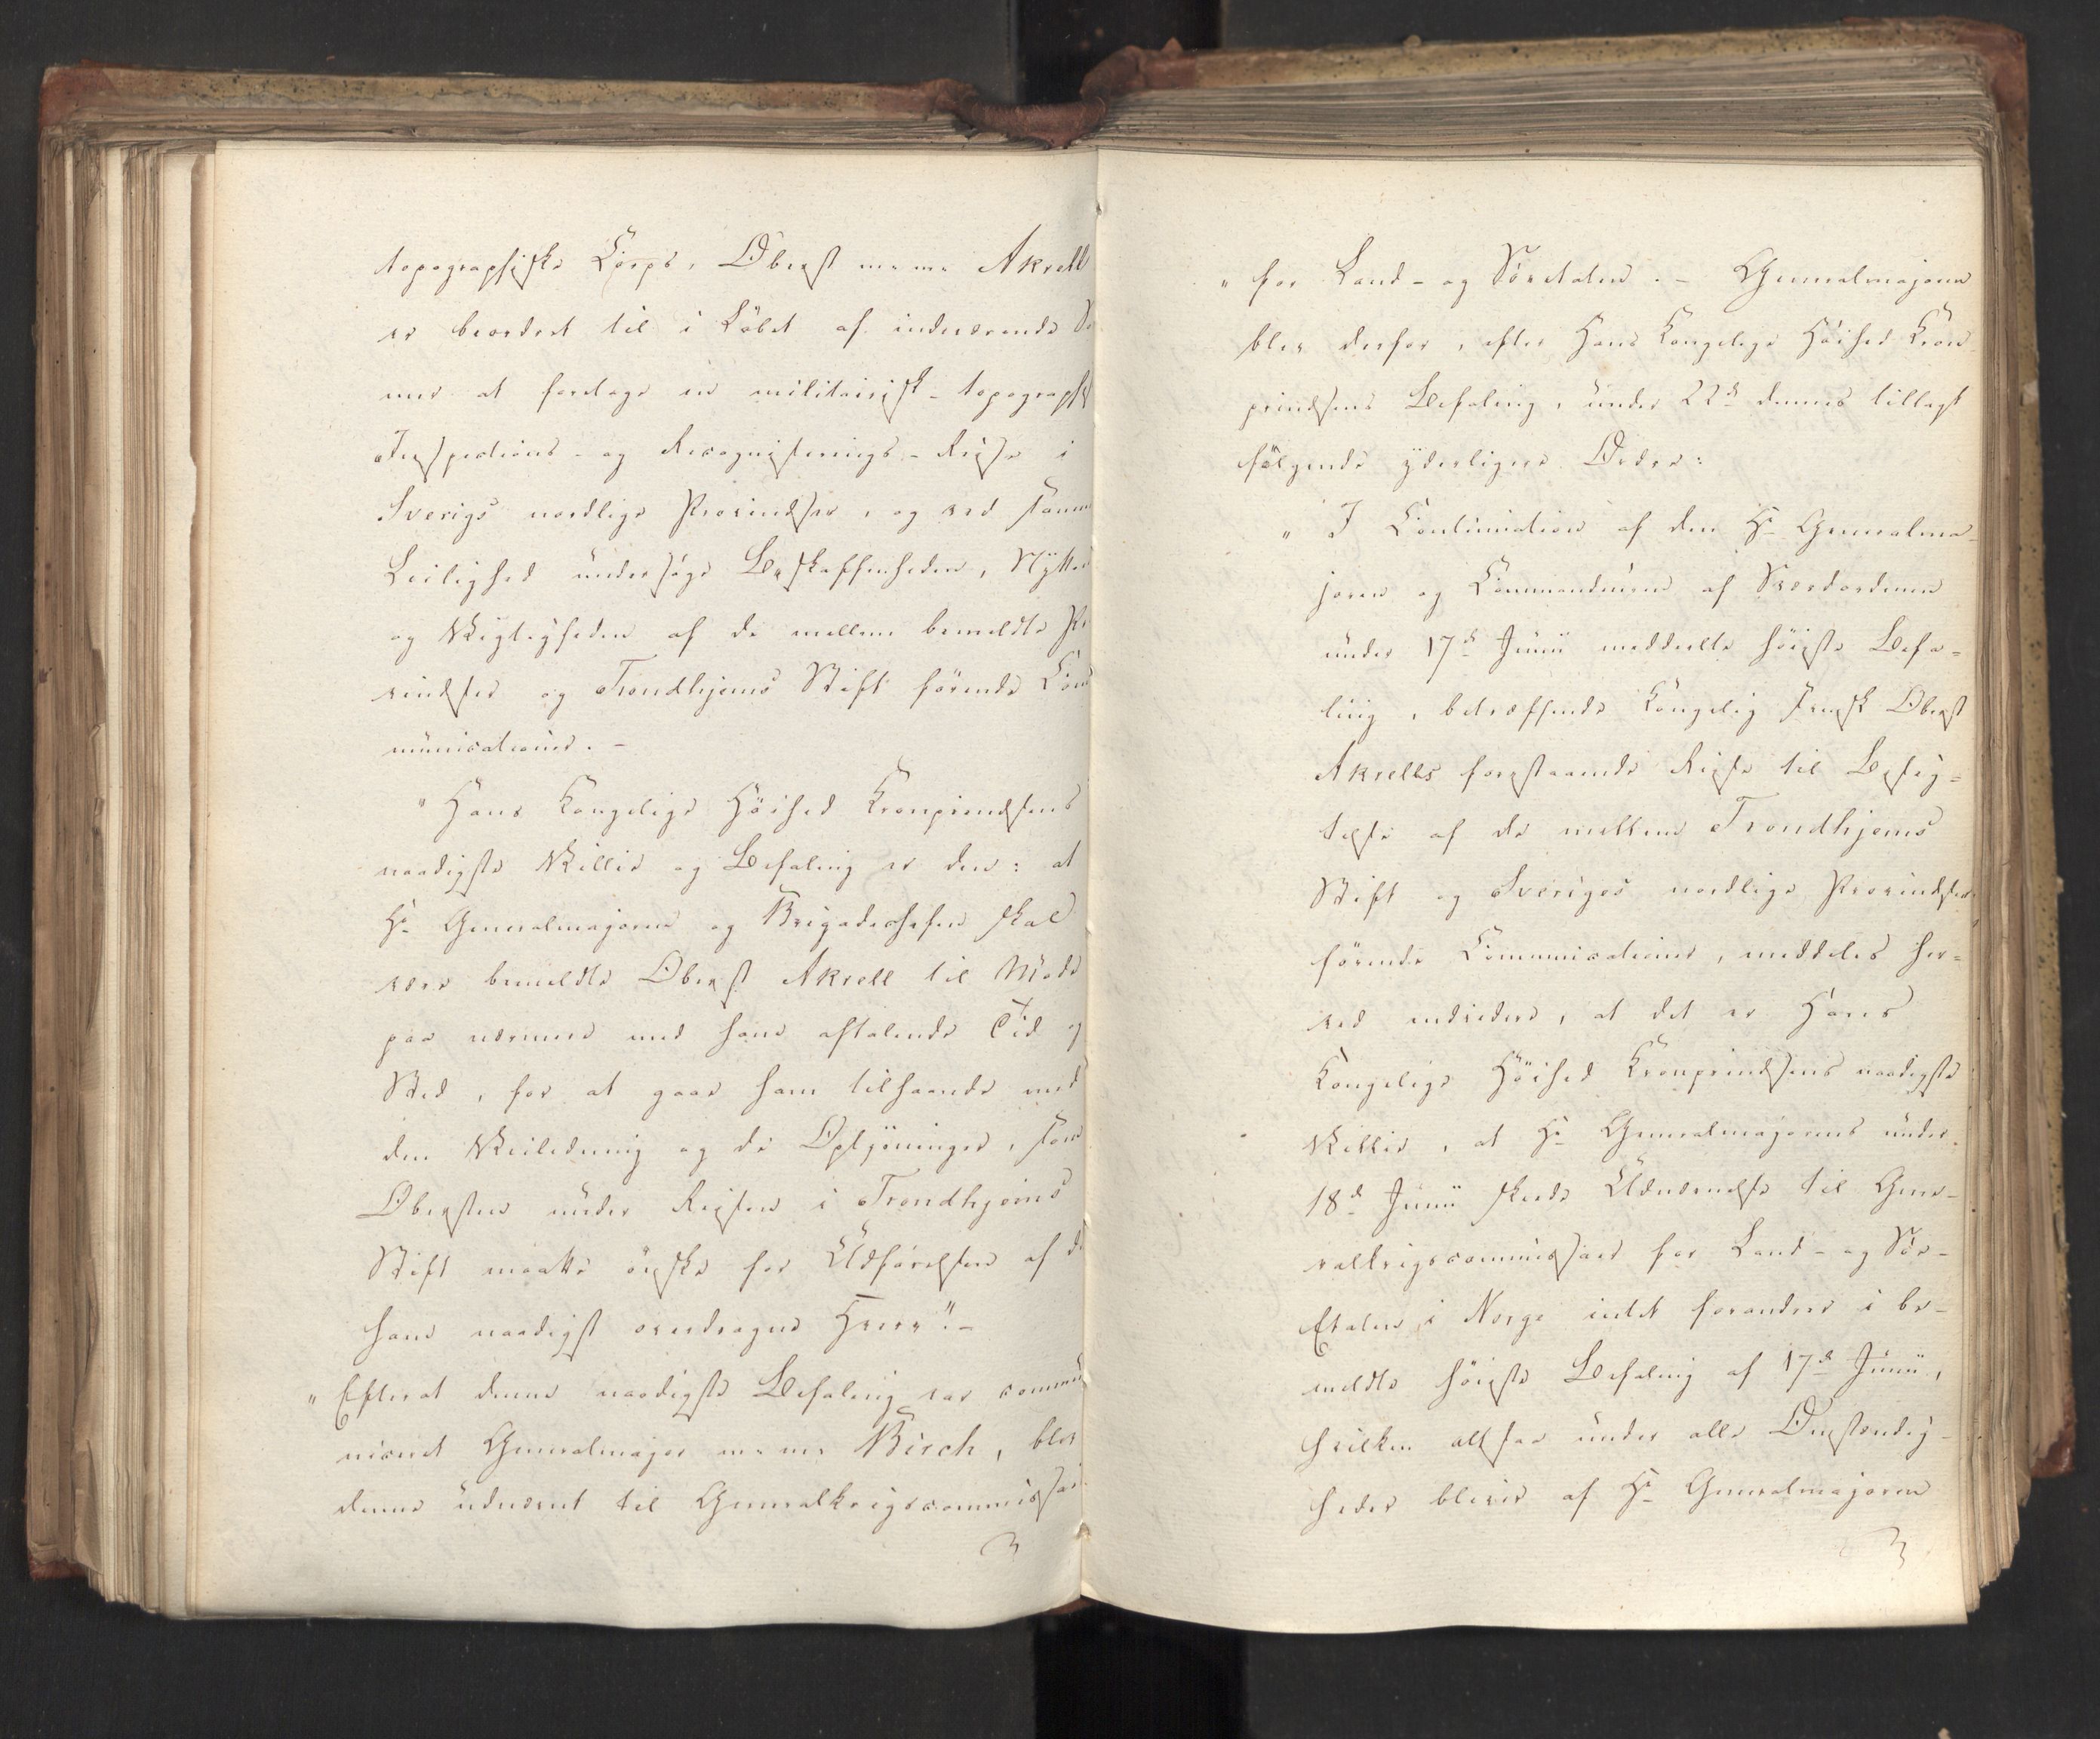 topographiske Corps, Oberst m. m. Akrell
er beordret til i Løbet af indeværende So
mer at foretage en militairisk-topographis
Inspections- og Recognoscerings-Reise i
Sverigs nordlige Provindser, og ved samme
Leilighed undersøge Beskaffenheden, Nytten
og Vigtigheden af de mellem bemeldte Pro
vindser og Trondhjems Stift førende Com
municationer. -
" Hans Kongelige Høihed Kronprindsens
naadigste Villie og Befaling er den: at
Hr. Generalmajoren og Brigadechefen skal
være bemeldte Oberst Akrell til Møde
paa nærmere med ham aftalende Tid og
Sted, for at gaae ham tilhaande med
den Veiledning og de Oplysninger, som
Obersten under Reisen i Trondhjems
Stift maatte ønske for Udførelsen af de
ham naadigst overdragne Hverv". -
" Efterat denne naadigste Befaling var commu
niceret Generalmajor m. m. Birch, blev
denne udnævnt til Generalkrigscommissai
" for Land- og Søeetaten. - Generalmajoren
blev derfor, efter Hans Kongelige Høihed Kron
prindsens Befaling, under 22d dennes tillagt
følgende yderligere Ordre:
" I Continuation af den Hr. Generalma-
joren og Commandeuren af Sværdordenen
under 17d Junii meddeelte høieste Befa-
ling, betræffende Kongelig Svensk Oberst
Akrells forestaaende Reise til Besig-
telse af de mellem Trondhjems
Stift og Sveriges nordlige Provindser
førende Communicationer, meddeles her-
ved endvidere, at det er Hans
Kongelige Høihed Kronprindsens naadigste
Villie, at Hr. Generalmajorens under
18d Junii skeede Udnævnelse til Gene-
ralkrigscommissair for Land- og Søe-
Etaten i Norge intet forandrer i be-
meldte høieste Befaling af 17d Junii,
hvilken altsaa under alle Omstændig-
heder bliver af Hr. Generalmajoren